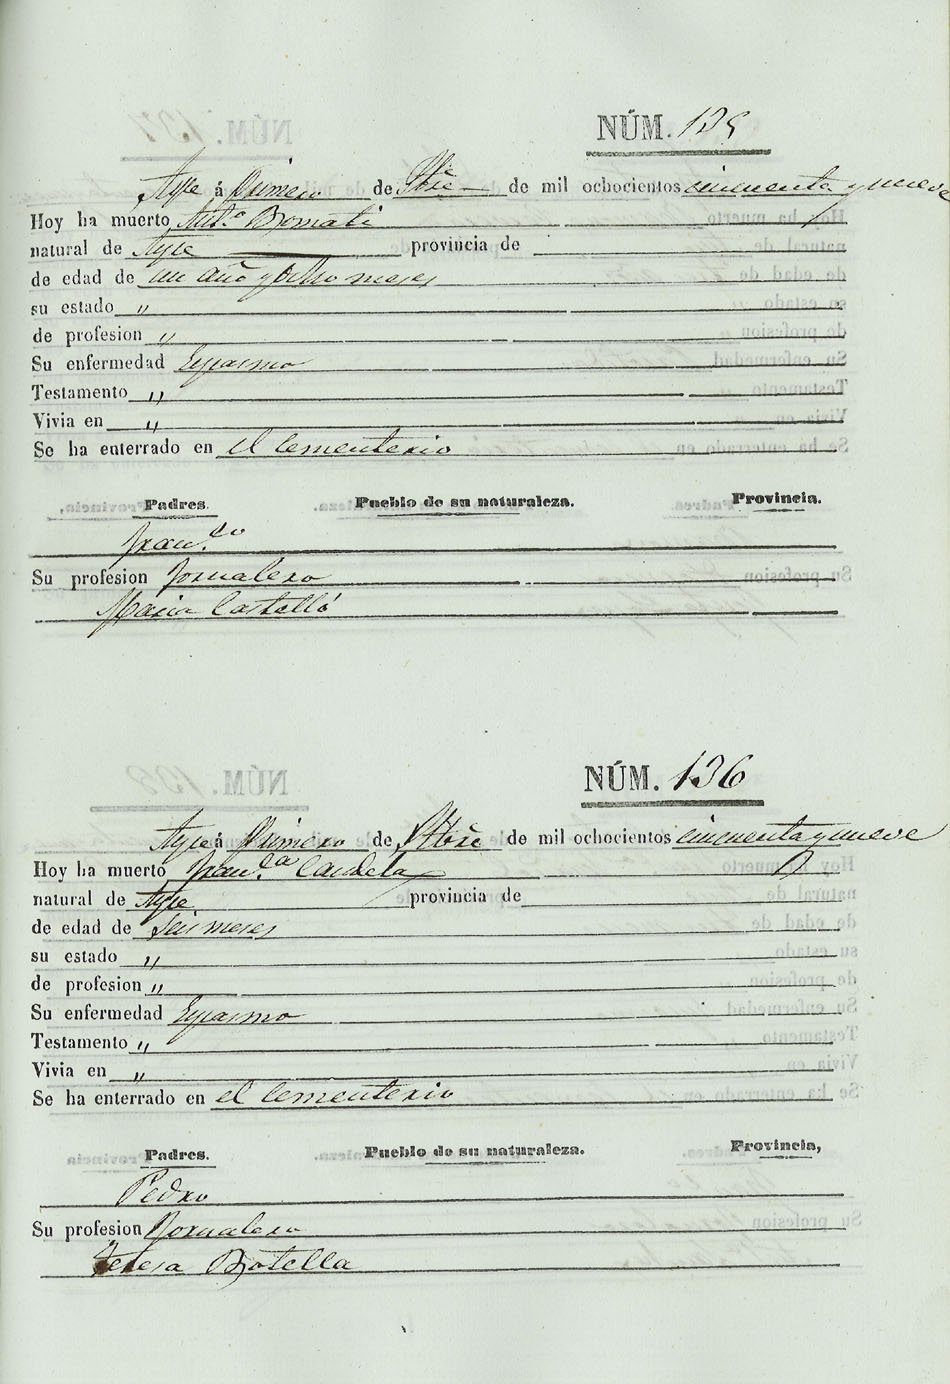 NÚM. 135
Aspe á Primero de 8bre de mil ochocientos cincuenta y nueve
Hoy ha muerto Ant.º Bernabé
natural de Aspe provincia de
de edad de un año y ocho meses
su estado "
de profesion "
Su enfermedad Espasmo
Testamento "
Vivia en "
Se ha enterrado en el Cementerio
Padres. Pueblo de su naturaleza. Provincia.
Fran.co
Su profesion Jornalero
Maria Castelló
NÚM. 136
Aspe á Primero de de mil ochocientos cincuenta y nueve
Hoy ha muerto Fran.ca Candela
natural de Aspe provincia de
de edad de Seis meses
su estado "
de profesion "
Su enfermedad Espasmo
Testamento "
Vivia en "
Se ha enterrado en el Cementerio
Padres. Pueblo de su naturaleza. Provincia,
Pedro
Su profesion Jornalero
Teresa Botella